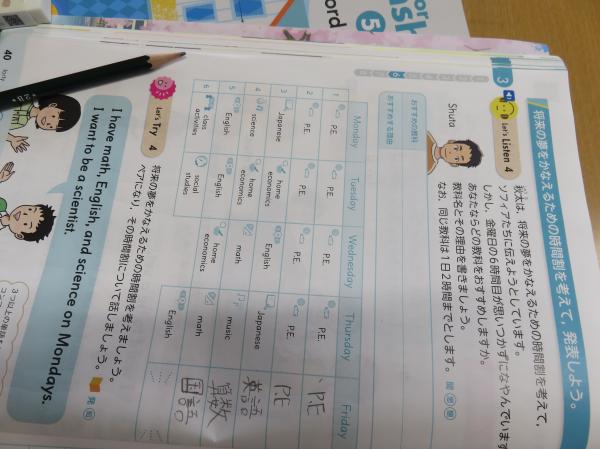 3 将来の夢をかなえるための時間割を考えて，発表しよう。
Let's Listen 4
秋太は，将来の夢をかなえるための時間割を考えて，
ソフィアたちに伝えようとしています。
しかし，金曜日の6時間目が思いつかずになやんでいます
あなたならどの教科をおすすめしますか。
教科名とその理由を書きましょう。
なお，同じ教科は1日2時間までとします。
Shuta
おすすめの教科
おすすめする理由
6
Monday Tuesday Wednesday Thursday Friday
1 P.E. P.E. P.E. P.E. P.E
2 P.E. P.E. P.E. P.E. P.E
3 Japanese home economics English Japanese 英語
4 science home economics math music 算数
5 English English home economics math 国語
6 class activities social studies English
Let's Try 4
将来の夢をかなえるための時間割を考えましょう。
ペアになり，その時間割について話しましょう。
I have math, English, and science on Mondays.
I want to be a scientist.
3つ以上の単語
40
forty
ord
5